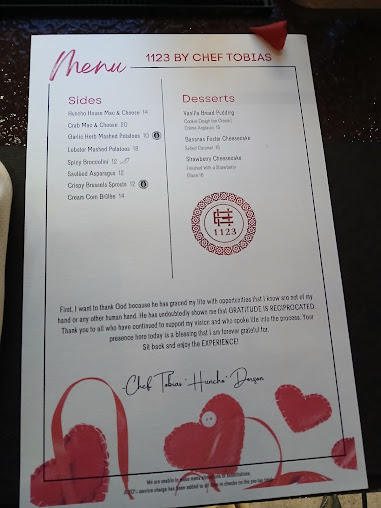 Menu
1123 BY CHEF TOBIAS
Sides
Huncho House Mac & Cheese 14
Crab Mac & Cheese 20
Garlic Herb Mashed Potatoes 10
Lobster Mashed Potatoes 18
Spicy Broccolini 12
Sautéed Asparagus 12
Crispy Brussels Sprouts 12
Cream Corn Brûlée 14
Desserts
Vanilla Bread Pudding
Cookie Dough Ice Cream |
Crème Anglaise 15
Bananas Foster Cheesecake
Salted Caramel 15
Strawberry Cheesecake
Finished With a Strawberry
Glaze 15
1123
First, I want to thank God because he has graced my life with opportunities that I know are not of my
hand or any other human hand. He has undoubtedly shown me that GRATITUDE IS RECIPROCATED.
Thank you to all who have continued to support my vision and who spoke life into the process. Your
presence here today is a blessing that I am forever grateful for.
Sit back and enjoy the EXPERIENCE!
-Chef Tobias "Huncho" Dorzon
We are unable to make menu
service charge has been added to all
checks on the pre-tax total